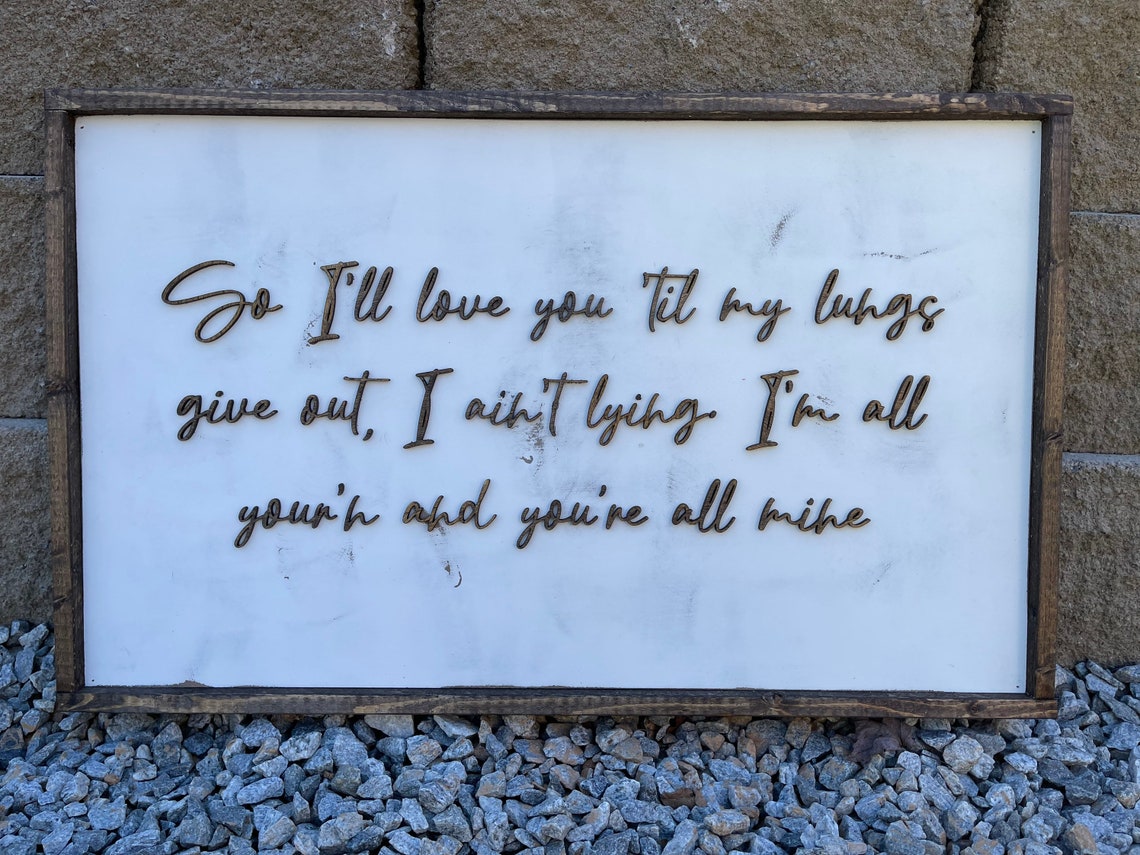 So I'll love you 'til my lungs
give out, I ain't lying. I'm all
your'n and you're all mine